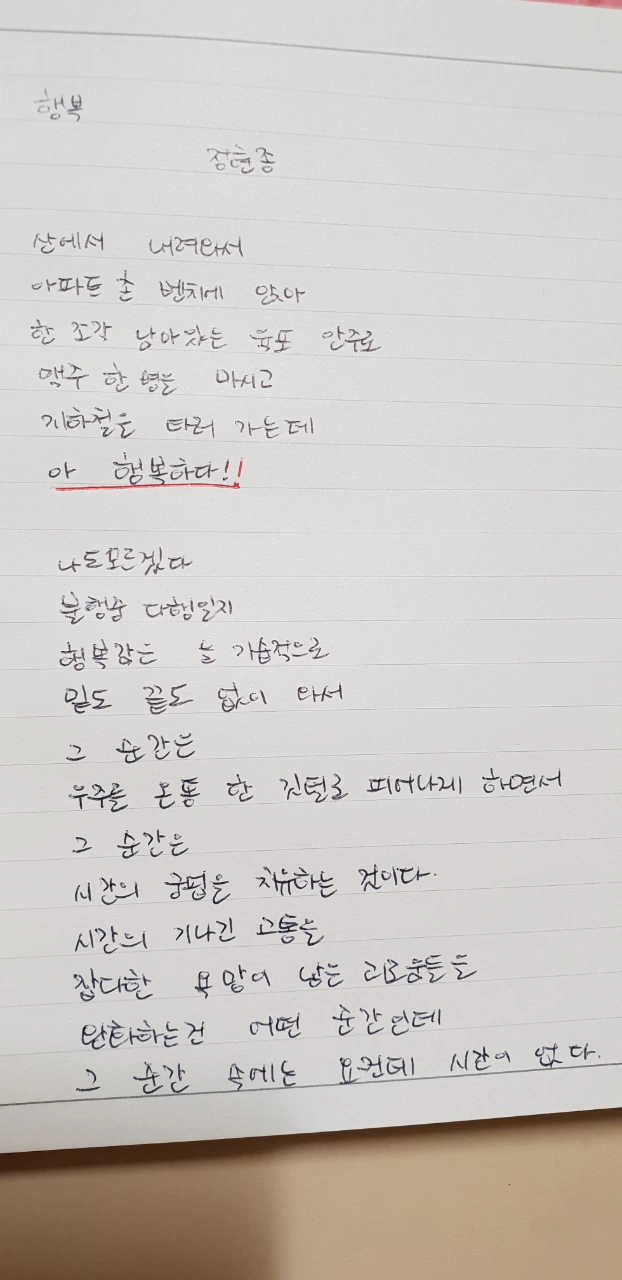 행복
정현종
산에서 내려와서
아파트 촌 벤치에 앉아
한 조각 남아있는 육포 안주로
맥주 한 병을 마시고
지하철을 타러 가는데
아 행복하다!!
나도모르겠다
불행중 다행일지
행복감은 늘 기습적으로
밑도 끝도 없이 와서
그 순간은
우주를 온통 한 깃털로 피어나게 하면서
그 순간은
시간의 궁핍을 치유하는 것이다.
시간의 기나긴 고통을
잡다한 욕망이 낳는 괴로움들을
완화하는건 어떤 순간인데
그 순간 속에는 요컨데 시간이 없다.